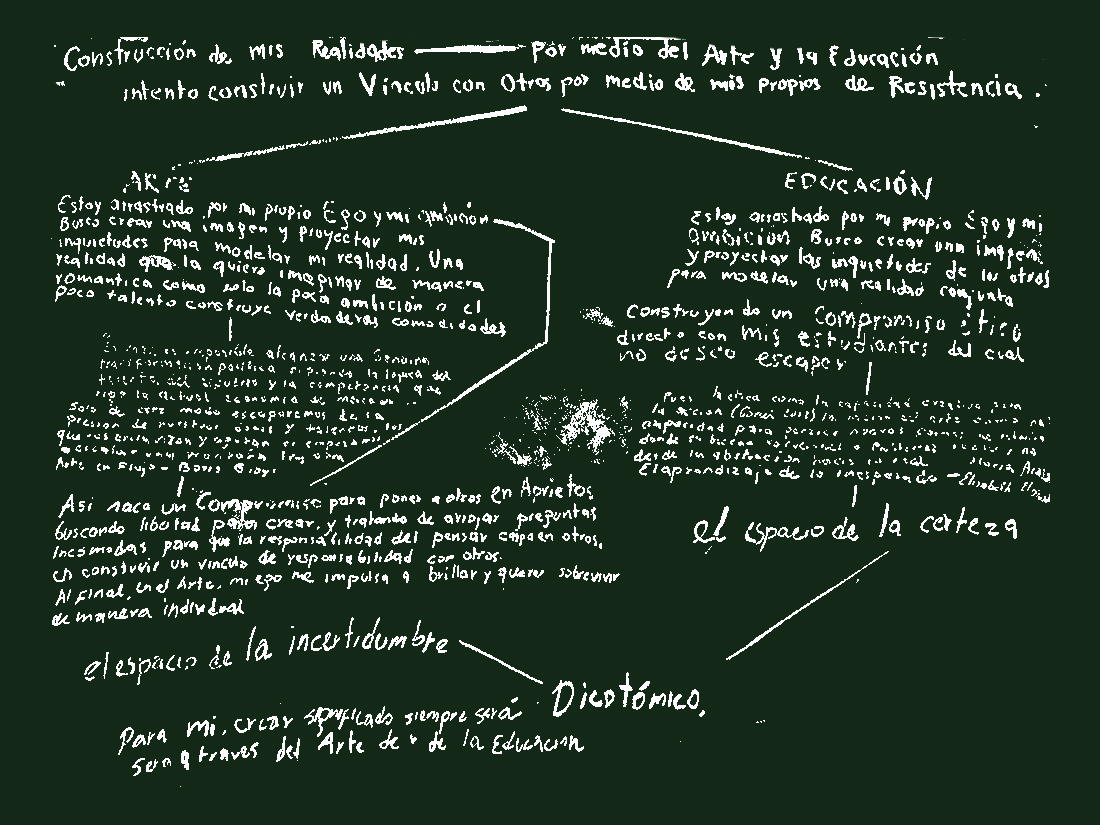 Construcción de mis Realidades — Por medio del Arte y la Educación
intento construir un Vínculo con Otros por medio de mis propios de Resistencia.
ARTE
Estoy arrastrado por mi propio Ego y mi ambición
Busco crear una imagen y proyectar mis
inquietudes para modelar mi realidad. Una
realidad que la quiero imaginar de manera
romantica como solo la poca ambición o el
poco talento construye verdaderas comodidades
es imposible alcanzar una Genuina
transformación política siguiendo la lógica del
talento, del y la competencia que
rige la actual economía de mercado
Solo de este modo escaparemos de la
presión de nuestros dones y talentos, los
que nos esclavizan y agotan al empezar a
escalar una montaña tras otra
Arte en Flujo - Boris Groys
Asi nace un Compromiso para poner a otros en Aprietos,
buscando libertad para crear, y tratando de arrojar preguntas
Incomodas para que la responsabilidad del pensar caiga en otros,
en construir un vinculo de responsabilidad con otros.
Al final, en el Arte, mi ego me impulsa a brillar y querer sobrevivir
de manera individual
el espacio de la incertidumbre
EDUCACIÓN
Estoy arrastrado por mi propio Ego y mi
ambición Busco crear una imagen
y proyectar las inquietudes de los otros
para modelar una realidad conjunta
Construyendo un Compromiso ético
directo con mis estudiantes del cual
no deseo escapar
Pues la etica como la capacidad creativa para
la acción
capacidad para percibir nuevas formas
donde
desde la abstracción hacia lo real
El aprendizaje de lo inesperado -
el espacio de la certeza
Dicotómico,
Para mi, crear significado siempre será
sera a traves del Arte de y de la Educacion